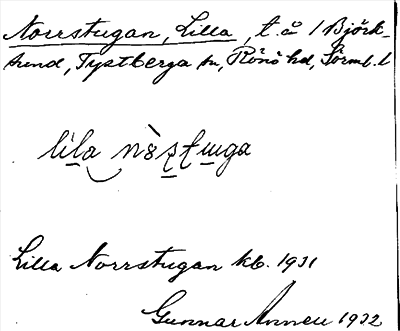 Norrstugan, Lilla, t. å 1 Björk-
sund, Tystberga sn, Rönö hd, Sörml. l
Lilla Norrstugan kb. 1931
Gunnar Annell 1932